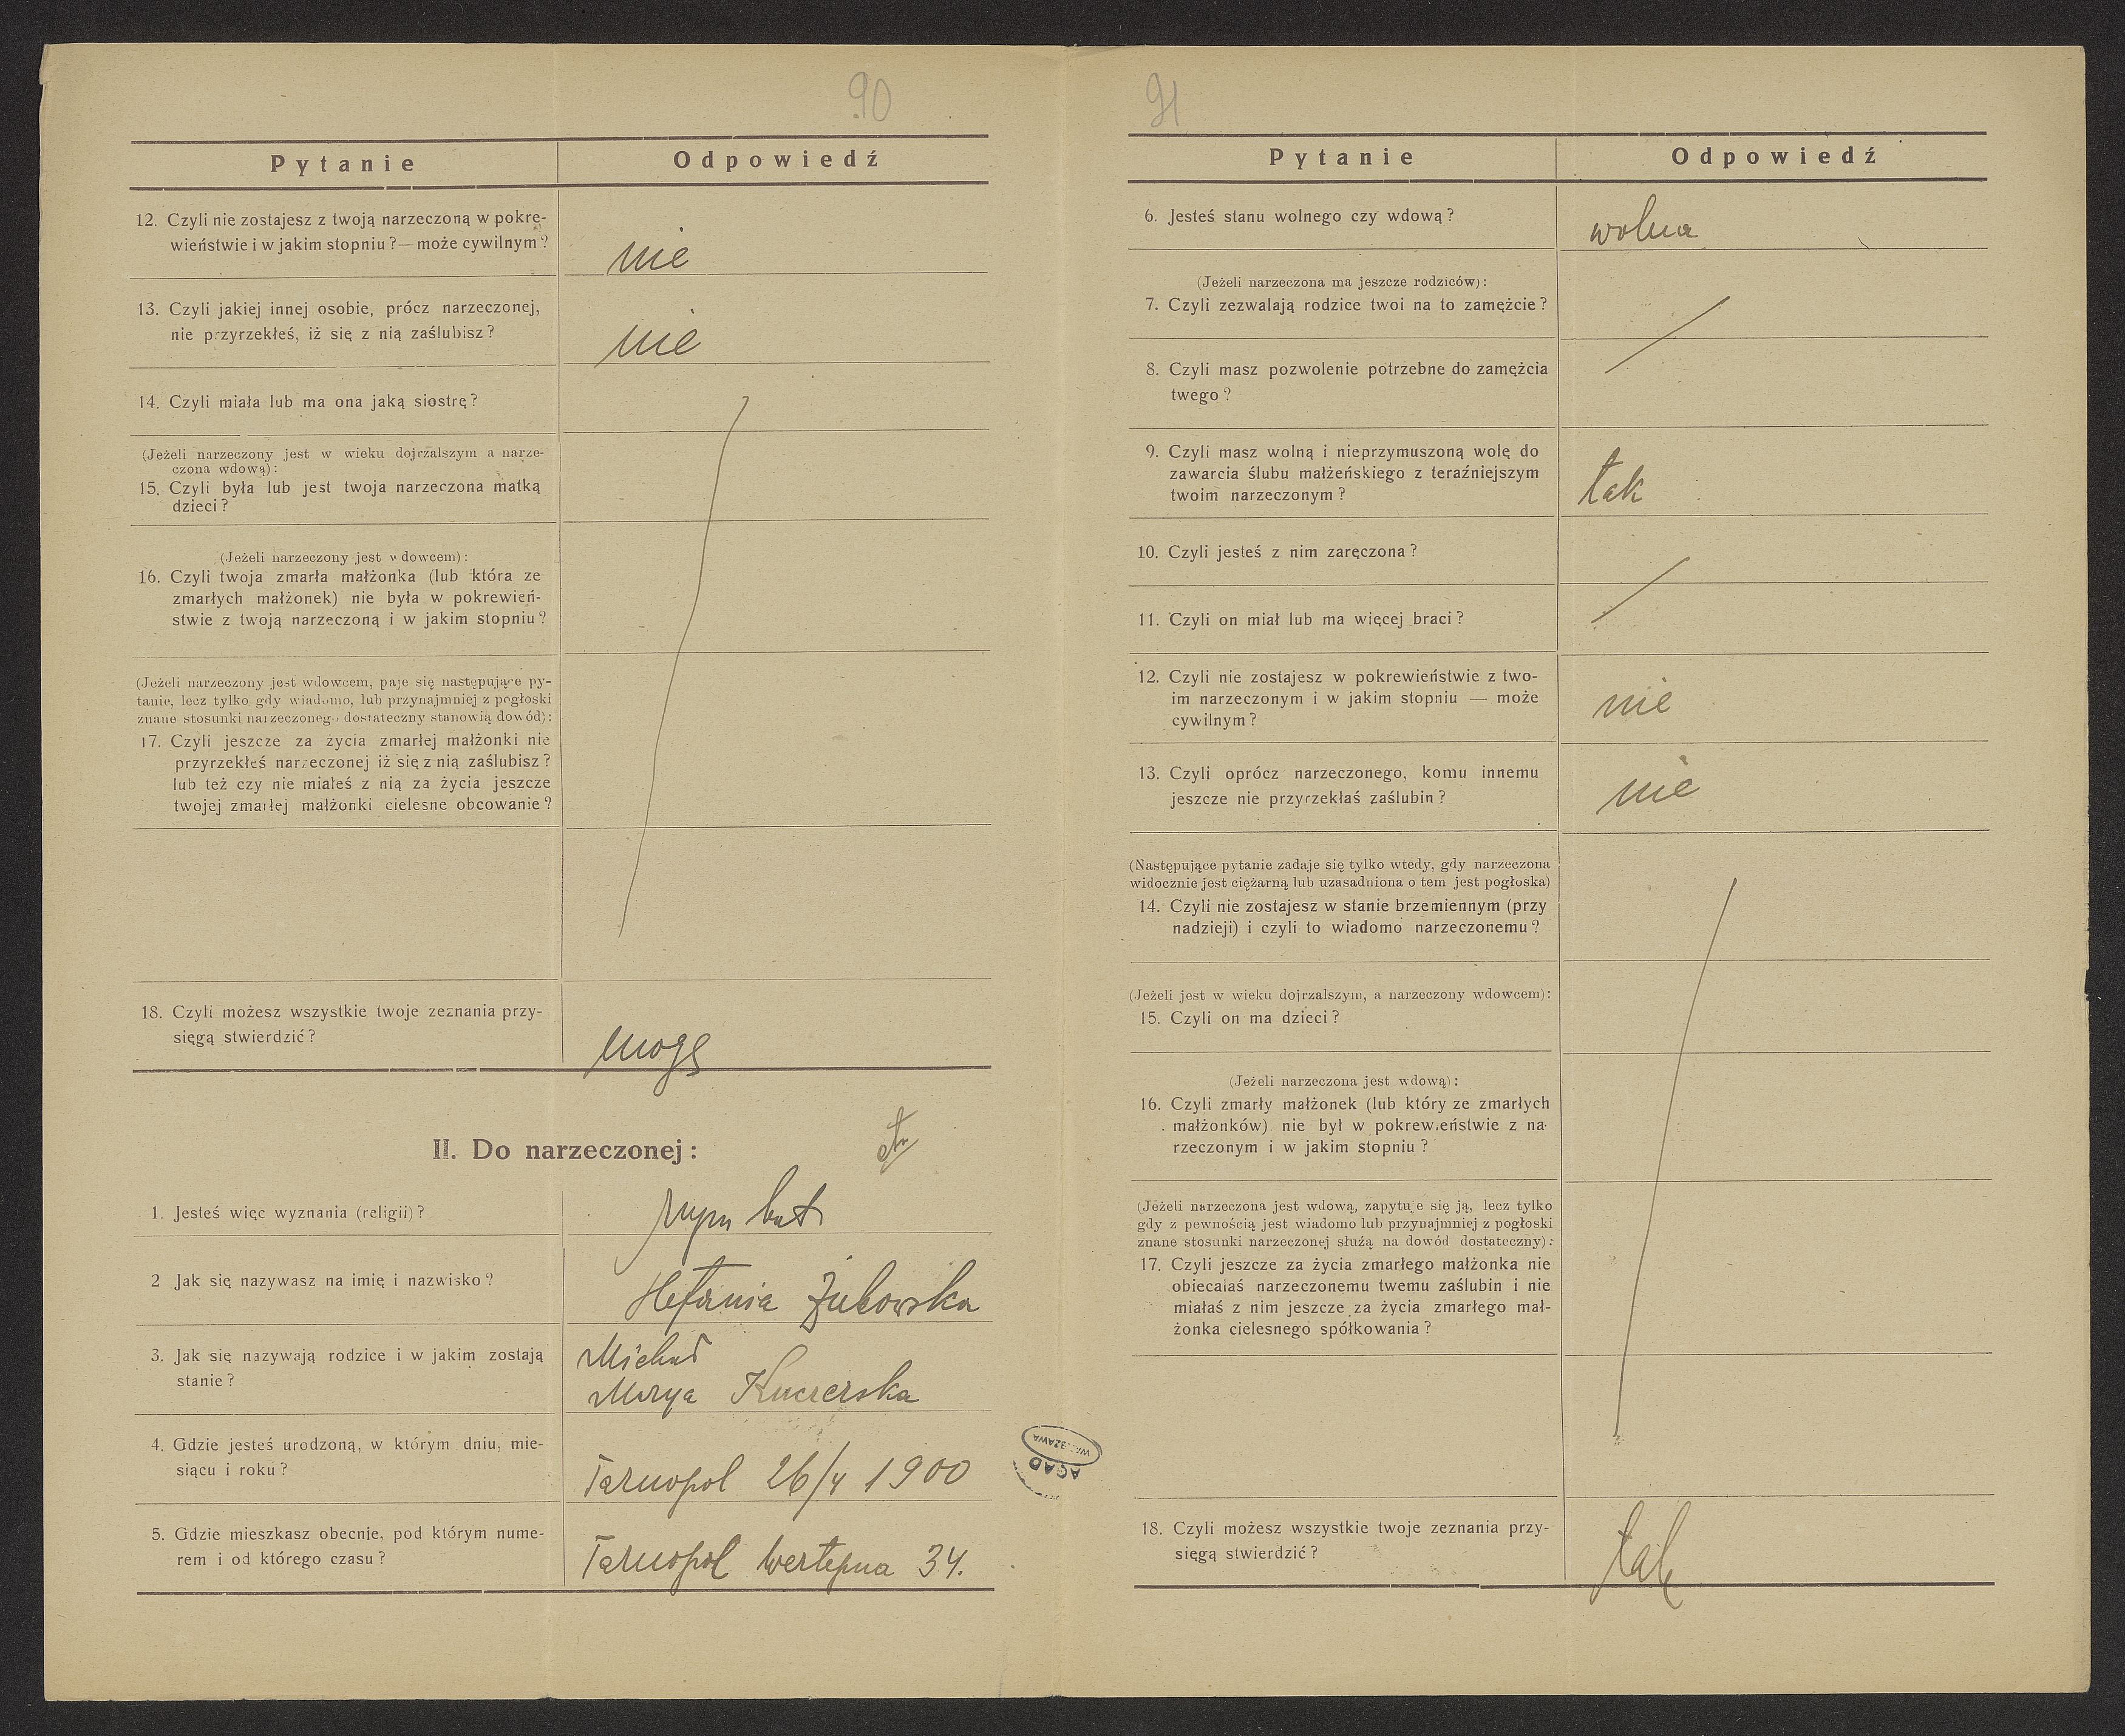 90
Pytanie
Odpowiedź
12. Czyli nie zostajesz z twoją narzeczoną w pokre-
wieństwie i w jakim stopniu? — może cywilnym?
nie
13. Czyli jakiej innej osobie, prócz narzeczonej,
nie przyrzekłeś, iż się z nią zaślubisz?
nie
14. Czyli miała lub ma ona jaką siostrę?
(Jeżeli narzeczony jest w wieku dojrzalszym a narze-
czona wdową):
15. Czyli była lub jest twoja narzeczona matką
dzieci?
(Jeżeli narzeczony jest wdowcem):
16. Czyli twoja zmarła małżonka (lub która ze
zmarłych małżonek) nie była w pokrewień-
stwie z twoją narzeczoną i w jakim stopniu?
(Jeżeli narzeczony jest wdowcem, paje się następujące py-
tanie, lecz tylko gdy wiadomo, lub przynajmniej z pogłoski
znane stosunki narzeczonego dostateczny stanowią dowód):
17. Czyli jeszcze za życia zmarłej małżonki nie
przyrzekłeś narzeczonej iż się z nią zaślubisz?
lub też czy nie miałeś z nią za życia jeszcze
twojej zmarłej małżonki cielesne obcowanie?
18. Czyli możesz wszystkie twoje zeznania przy-
sięgą stwierdzić?
mogę
II. Do narzeczonej:
1. Jesteś więc wyznania (religii)?
rzym kat
2 Jak się nazywasz na imię i nazwisko?
Stefania Żukowska
3. Jak się nazywają rodzice i w jakim zostają
stanie?
Michał
Marya Kuczerska
4. Gdzie jesteś urodzoną, w którym dniu, mie-
siącu i roku?
Tarnopol 26/4 1900
5. Gdzie mieszkasz obecnie, pod którym nume-
rem i od którego czasu?
Tarnopol Wertepna 34.
AGAD
WARSZAWA
91
Pytanie
Odpowiedź
6. Jesteś stanu wolnego czy wdową?
wolna
(Jeżeli narzeczona ma jeszcze rodziców):
7. Czyli zezwalają rodzice twoi na to zamężcie?
8. Czyli masz pozwolenie potrzebne do zamężcia
twego?
9. Czyli masz wolną i nieprzymuszoną wolę do
zawarcia ślubu małżeńskiego z teraźniejszym
twoim narzeczonym?
tak
10. Czyli jesteś z nim zaręczona?
11. Czyli on miał lub ma więcej braci?
12. Czyli nie zostajesz w pokrewieństwie z two-
im narzeczonym i w jakim stopniu — może
cywilnym?
nie
13. Czyli oprócz narzeczonego, komu innemu
jeszcze nie przyrzekłaś zaślubin?
nie
(Następujące pytanie zadaje się tylko wtedy, gdy narzeczona
widocznie jest ciężarną lub uzasadniona o tem jest pogłoska)
14. Czyli nie zostajesz w stanie brzemiennym (przy
nadzieji) i czyli to wiadomo narzeczonemu?
(Jeżeli jest w wieku dojrzalszym, a narzeczony wdowcem):
15. Czyli on ma dzieci?
(Jeżeli narzeczona jest wdową):
16. Czyli zmarły małżonek (lub który ze zmarłych
małżonków) nie był w pokrewieństwie z na-
rzeczonym i w jakim stopniu?
(Jeżeli narzeczona jest wdową, zapytuje się ją, lecz tylko
gdy z pewnością jest wiadomo lub przynajmniej z pogłoski
znane stosunki narzeczonej służą na dowód dostateczny):
17. Czyli jeszcze za życia zmarłego małżonka nie
obiecałaś narzeczonemu twemu zaślubin i nie
miałaś z nim jeszcze za życia zmarłego mał-
żonka cielesnego spółkowania?
18. Czyli możesz wszystkie twoje zeznania przy-
sięgą stwierdzić?
tak